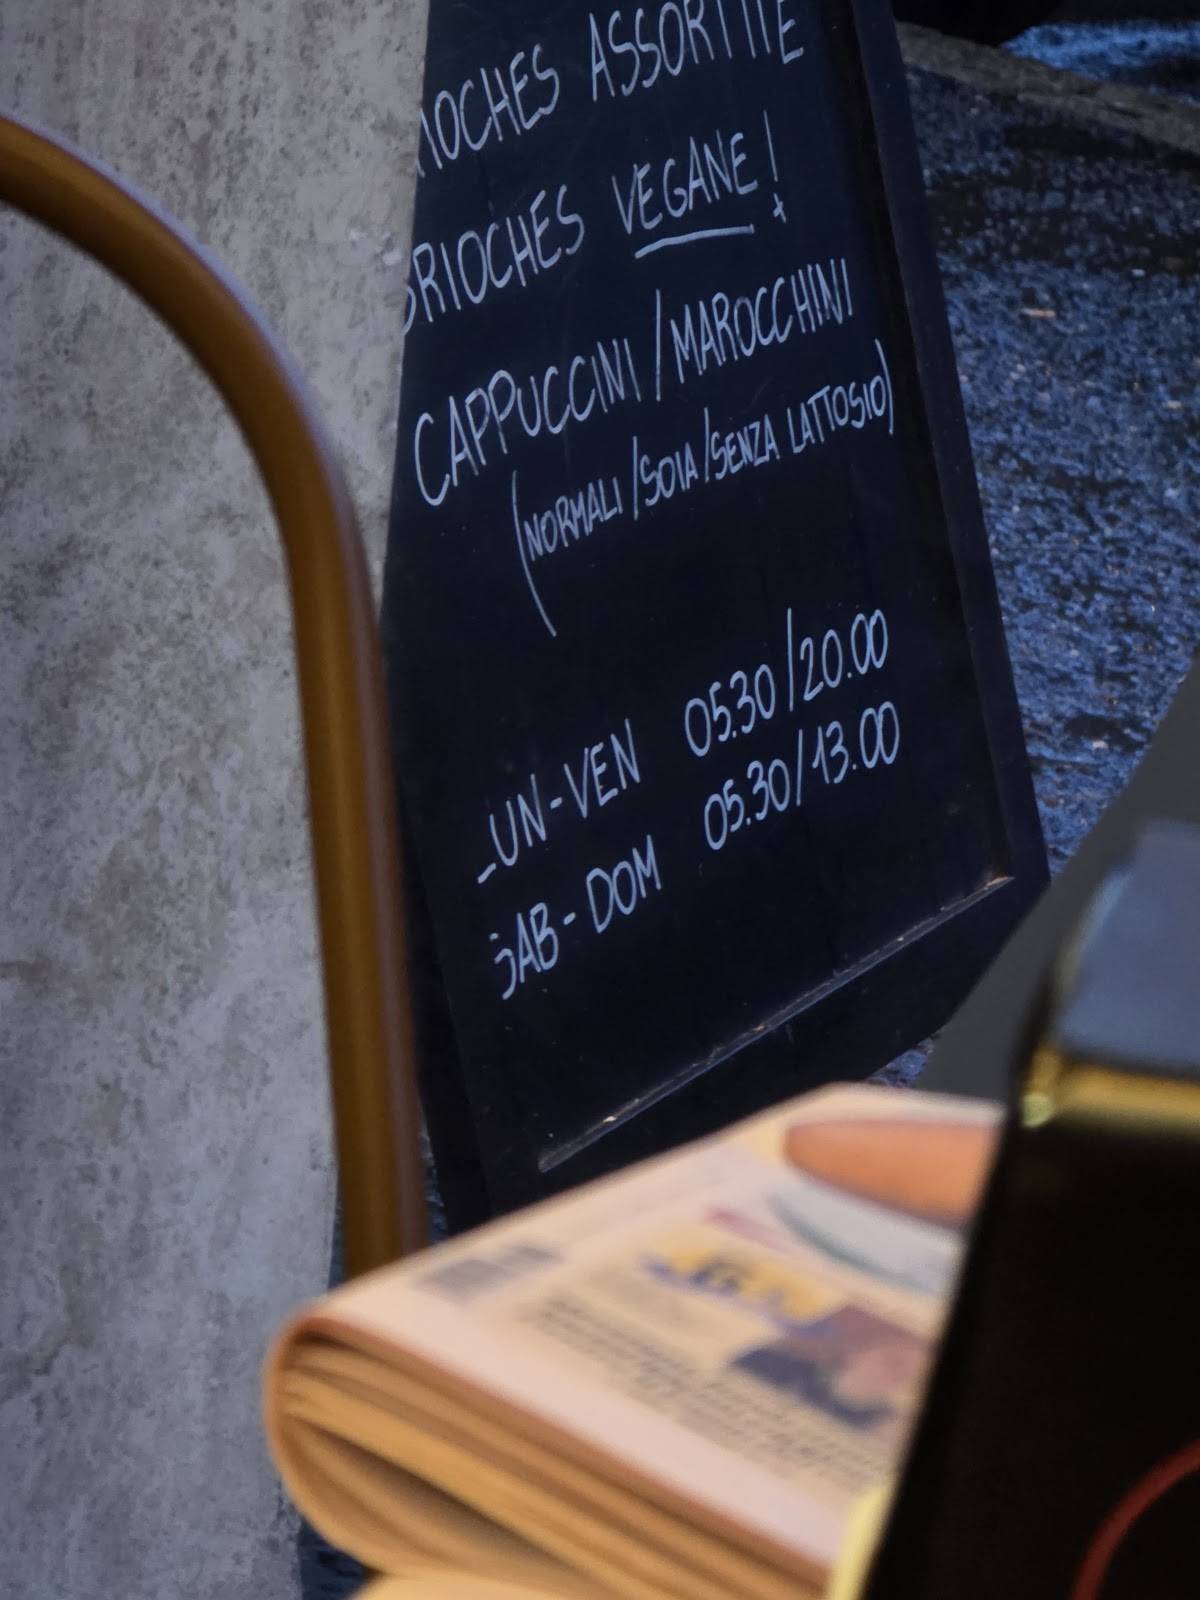 RIOCHES ASSORTITE
BRIOCHES VEGANE!
CAPPUCCINI/MAROCCHINI
(NORMALI/SOIA/SENZA LATTOSIO)
LUN-VEN 05.30/20.00
SAB-DOM 05.30/13.00